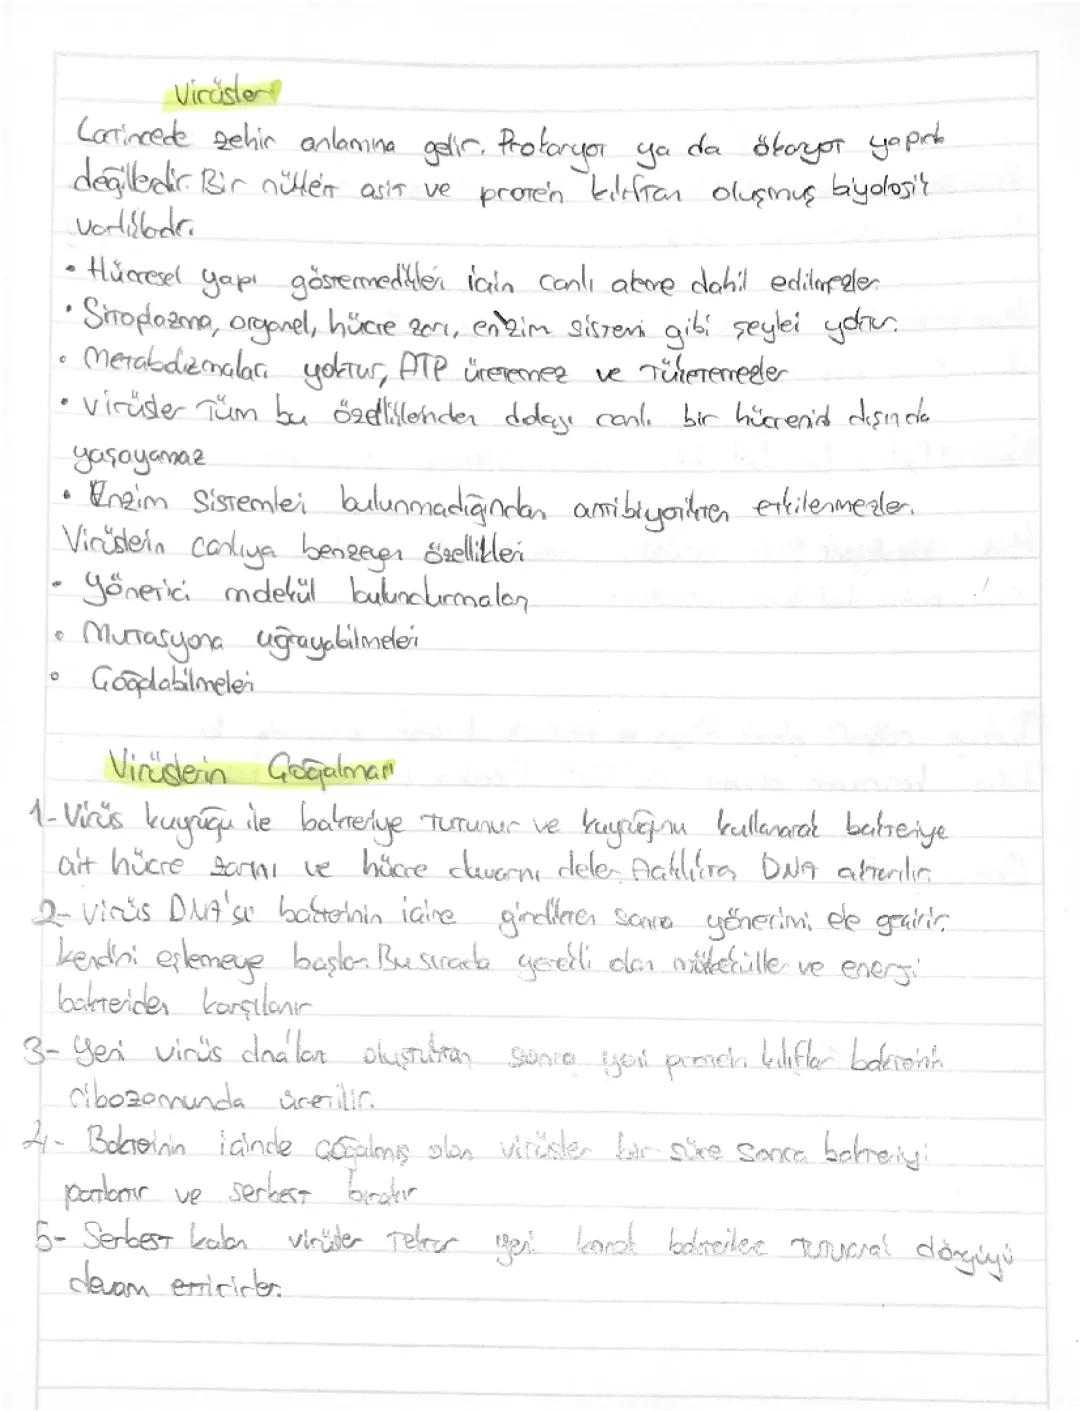 Virüsler
Latincede zehir anlamına gelir. Prokaryot ya da ökaryot yapılı
değillerdir. Bir nükleit asit ve protein kılıftan oluşmuş biyolojik
varlıklardır.
• Hücresel yapı göstermedikleri için canlı aleme dahil edilmezler.
• Sitoplazma, organel, hücre zarı, enzim sistemi gibi şeyleri yoktur.
• Metabolizmaları yoktur, ATP üretemez ve tüketemezler
• Virüsler tüm bu özelliklerinden dolayı canlı bir hücrenin dışında
yaşayamaz
• Enzim sistemleri bulunmadığından antibiyotikten etkilenmezler.
Virüslerin canlıya benzeyen özellikleri
• Yönetici molekül bulundurmaları
• Mutasyona uğrayabilmeleri
• Çoğalabilmeleri
Virüslerin Çoğalması
1- Virüs kuyruğu ile bakteriye tutunur ve kuyruğunu kullanarak bakteriye
ait hücre zarını ve hücre duvarını deler. DNA aktarılır.
2- Virüs DNA'sı bakterinin içine girdikten sonra yönetimi ele geçirir.
kendini eşlemeye başlar. Bu sırada gerekli olan moleküller ve enerji
bakteriden karşılanır
3- Yeni virüs dna'ları oluştuktan sonra yeni protein kılıflar bakterinin
ribozomunda üretilir.
4- Bakterinin içinde çoğalmış olan virüsler bir süre sonra bakteriyi
patlatır ve serbest bırakır
5- Serbest kalan virüsler tekrar yeni konak bakterilere tutunarak döngüyü
devam ettirirler.